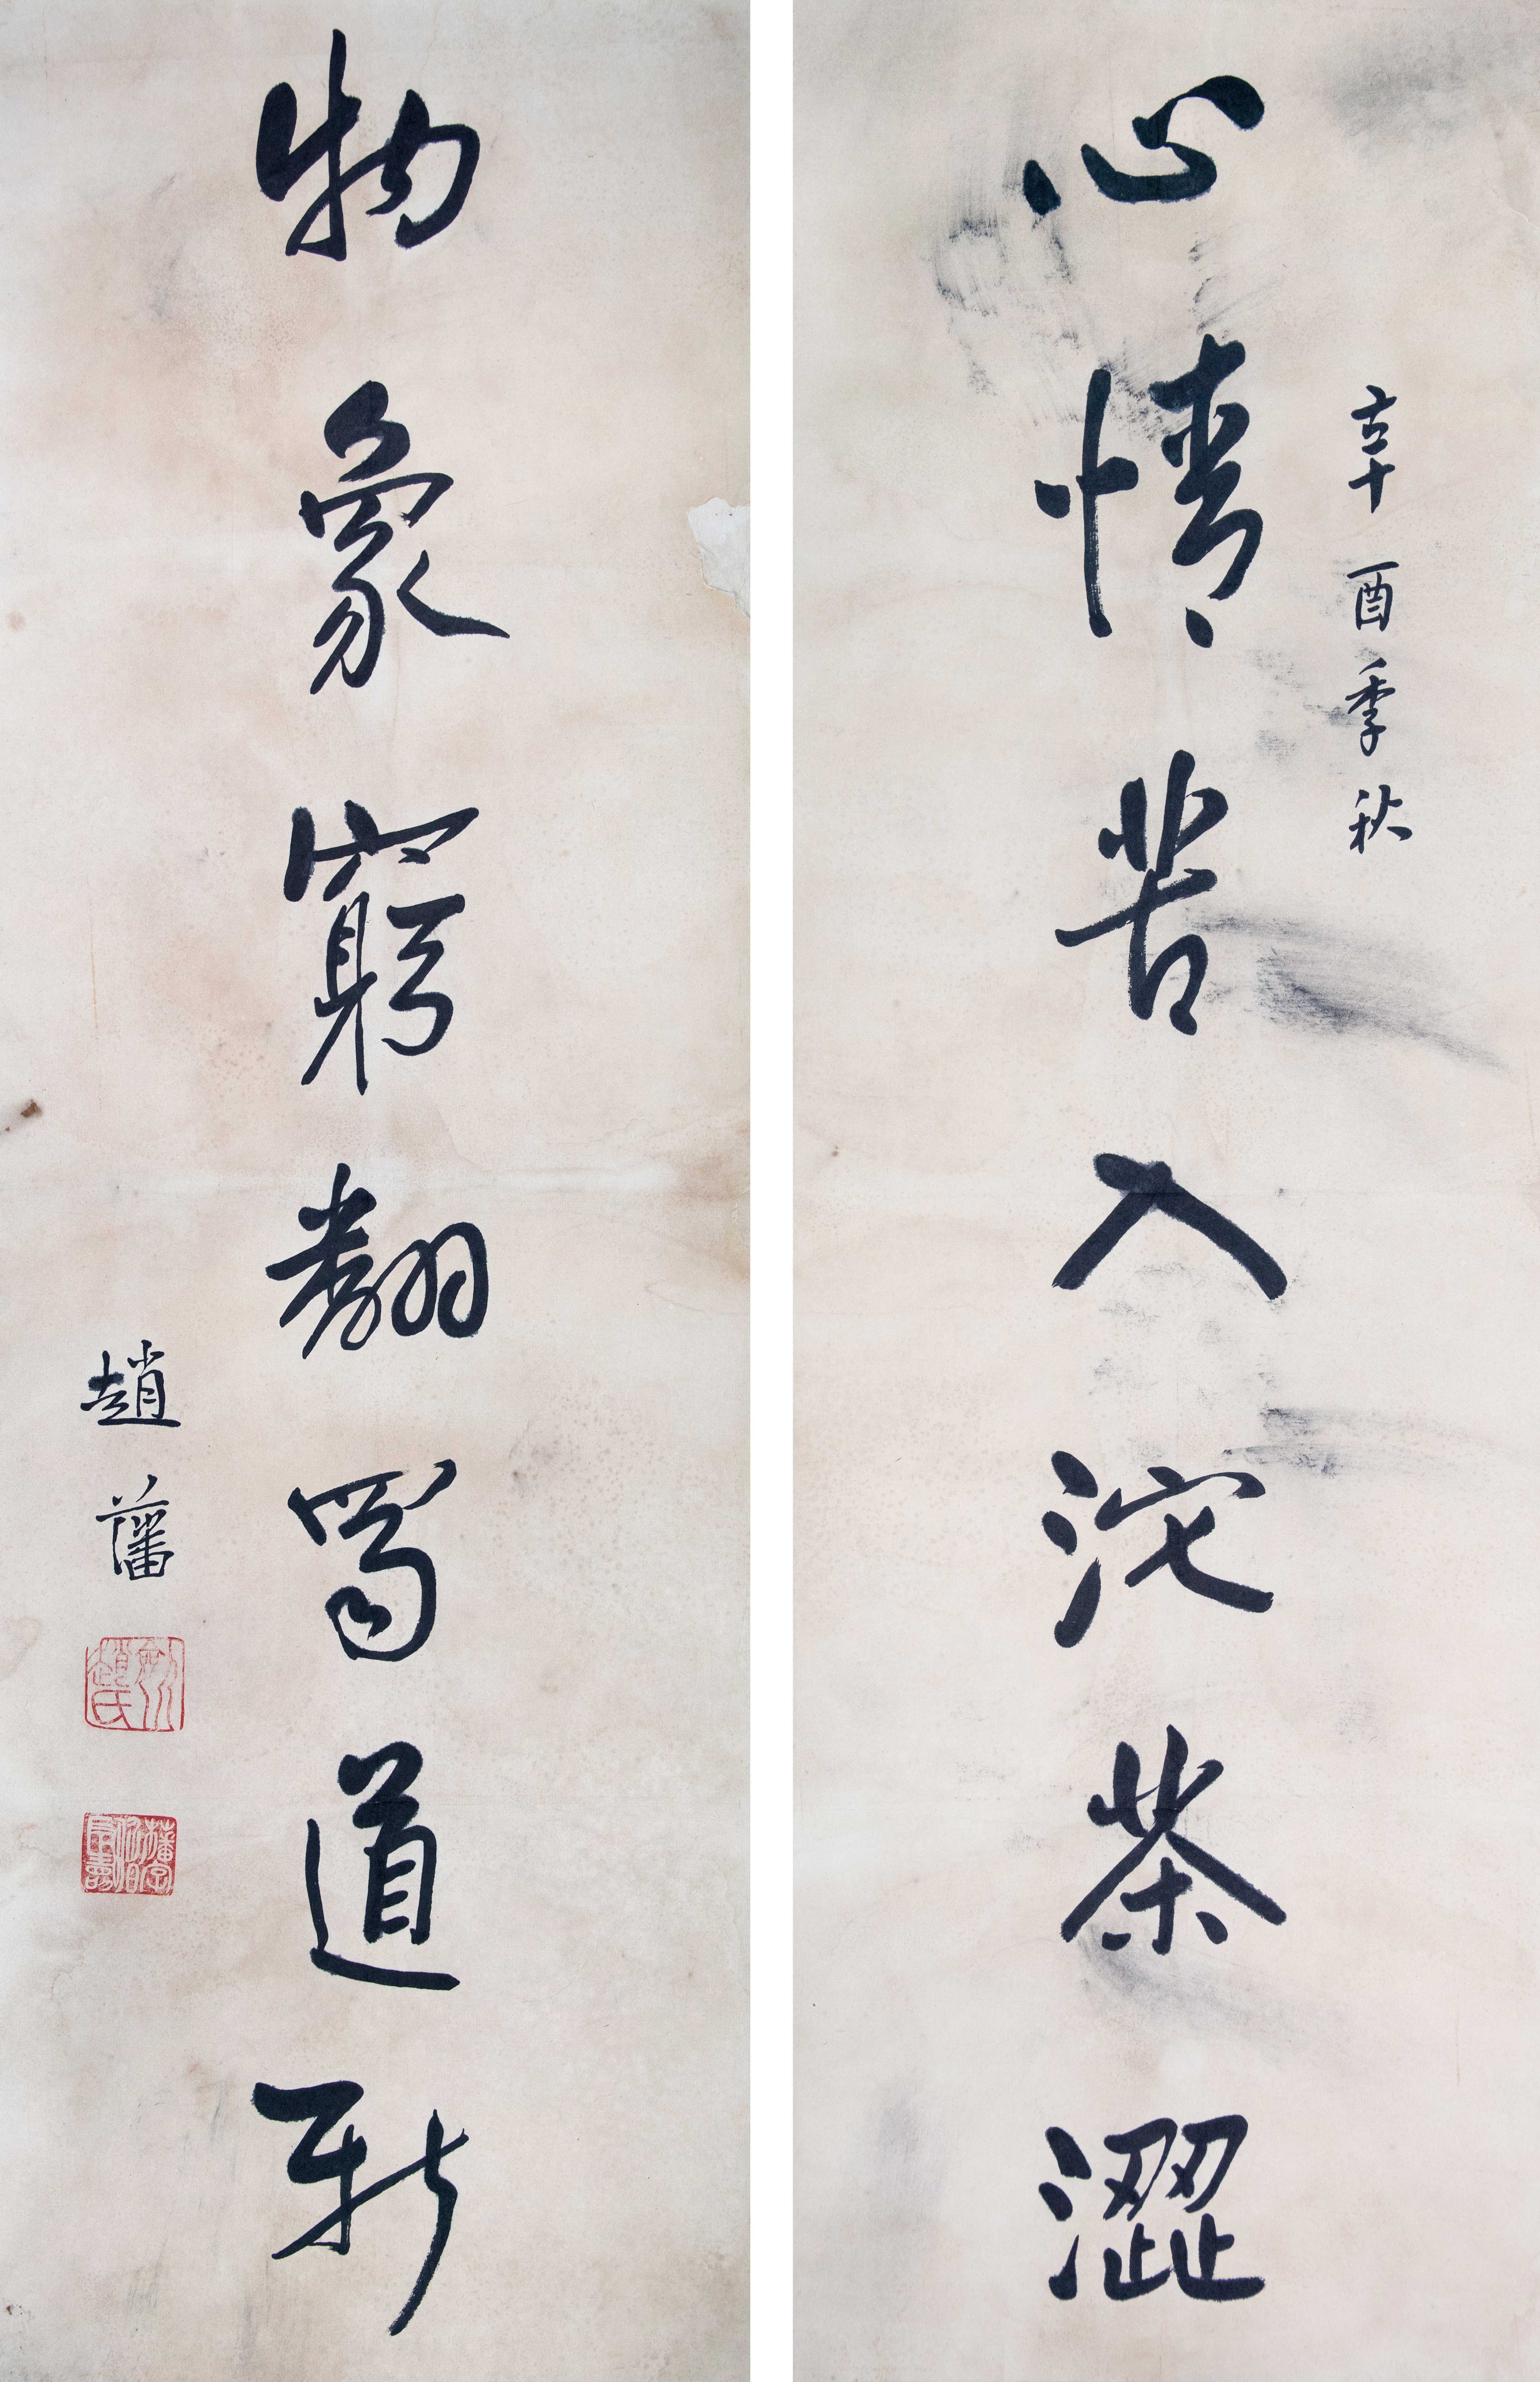 辛酉季秋
心情苦入沱茶澀
物象窮翻蜀道新
趙藩
劍川趙氏